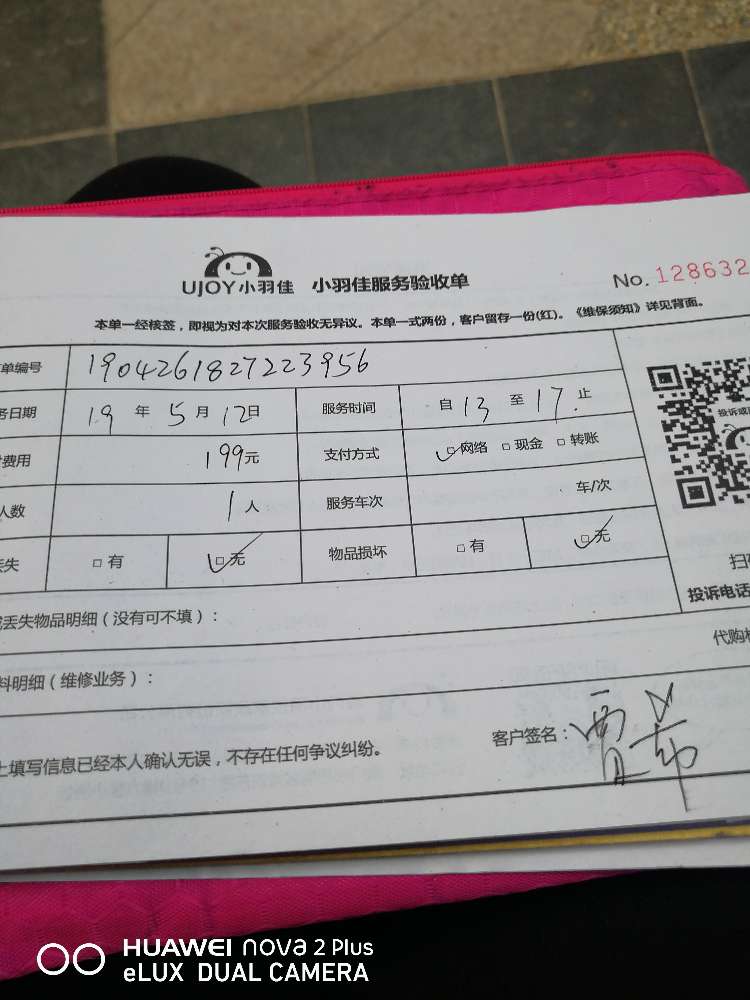 UJOY小羽佳 小羽佳服务验收单 No. 128632
本单一经核签，即视为对本次服务验收无异议。本单一式两份，客户留存一份(红)。《维保须知》详见背面。
单编号 1904261827223956
务日期 19 年 5 月 12 日 服务时间 自 13 至 17 止
费用 199元 支付方式 网络 现金 转账
人数 1人 服务车次 车/次
丢失 有 无 物品损坏 有 无
投诉或
扫码
投诉电话
或丢失物品明细（没有可不填）：
代购材
料明细（维修业务）：
上填写信息已经本人确认无误，不存在任何争议纠纷。 客户签名：贾
HUAWEI nova 2 Plus
eLUX DUAL CAMERA